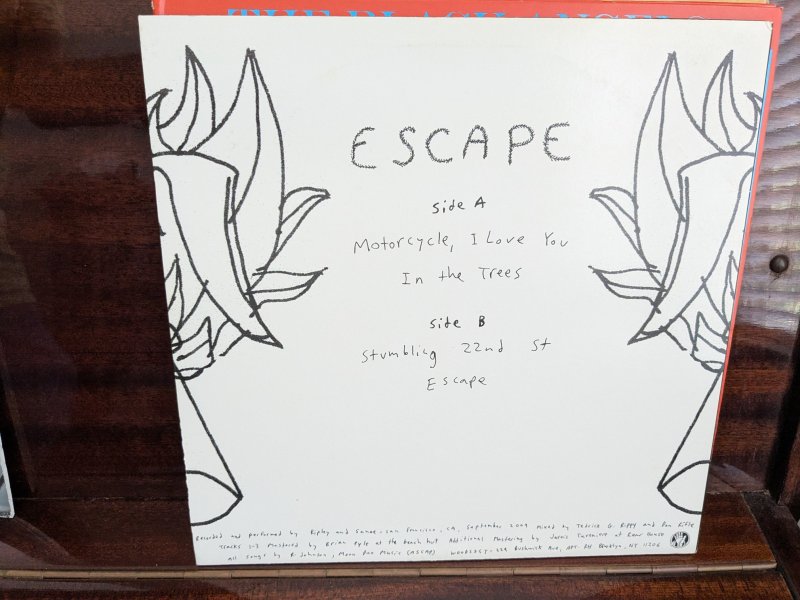 THE BLACK ANGELS
ESCAPE
side A
Motorcycle, I Love You
In the Trees
side B
Stumbling 22nd St
Escape
Recorded and performed by Ripley and Sanae - San Francisco, CA, September 2009 mixed by and
Tracks 1-3 Mastered by Brian Pyle at the beach hut Additional Mastering by Jarvis Taveniere at Rear House
all songs by R. Johnson, Moon Pao Music (ASCAP) WOODSIST - 228 Bushwick Ave, APT. Brooklyn, NY 11206